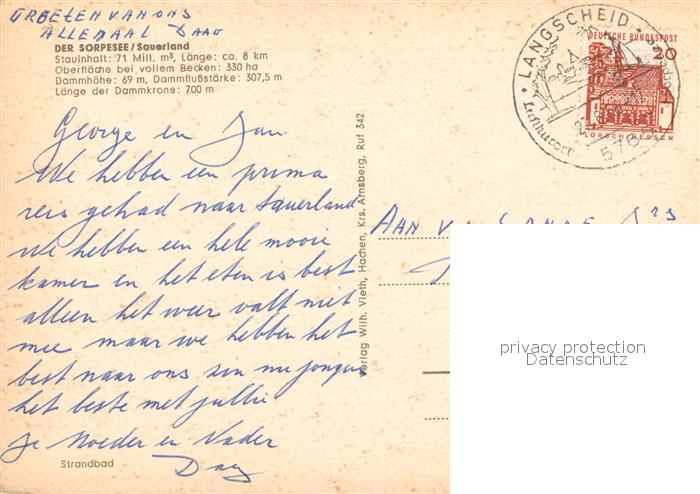 GROETEN VAN ONS
ALLEMAAL DAAG
DER SORPESEE/Sauerland
Stauinhalt: 71 Mill. m³, Länge: ca. 8 km
Oberfläche bei vollem Becken: 330 ha
Dammhöhe: 69 m, Dammflußstärke: 307,5 m
Länge der Dammkrone: 700 m
George en Jan
We hebben een prima
reis gehad naar Sauerland
We hebben een hele mooie
kamer en het eten is best
alleen het weer valt niet
mee maar we hebben het
best naar ons zin nu jongens
het beste met jullie
je Moeder en Vader
Dag
Strandbad
Verlag Wilh. Vieth, Hachen, Krs. Arnsberg, Ruf 342
LANGSCHEID
Luftkurort
576
DEUTSCHE BUNDESPOST
20
LORSCH/HESSEN
AAN
privacy protection
Datenschutz